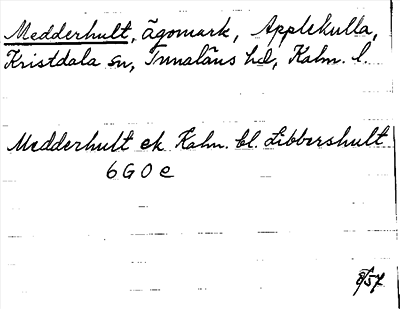 Medderhult, ägomark, Applekulla,
Kristdala sn, Tunaläns hd, Kalm. l.
Medderhult ek Kalm. bl. Libbershult
6 G 0 e
8/57